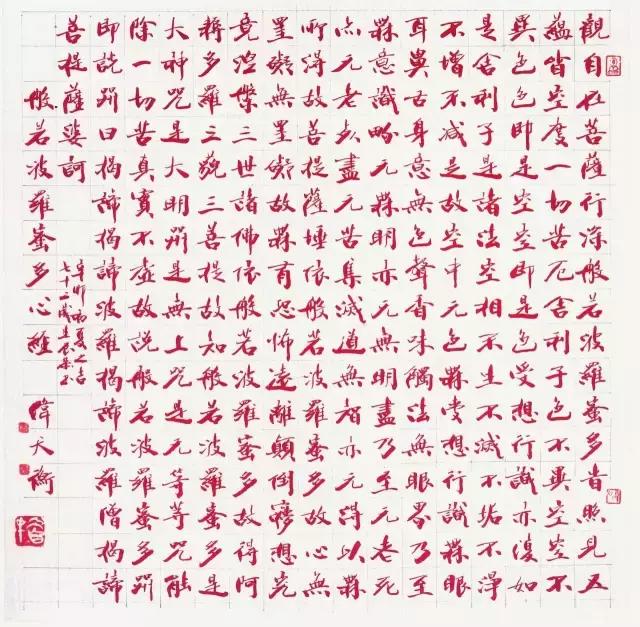 觀自在菩薩行深般若波羅蜜多時照見五
蘊皆空度一切苦厄舍利子色不異空空不
異色色即是空空即是色受想行識亦復如
是舍利子是諸法空相不生不滅不垢不淨
不增不減是故空中无色無受想行識無眼
耳鼻舌身意無色聲香味觸法無眼界乃至
無意識界无無明亦无無明盡乃至无老死
亦无老死盡无苦集滅道無智亦无得以無
所得故菩提薩埵依般若波羅蜜多故心無
罣礙無罣礙故無有恐怖遠離顛倒夢想究
竟涅槃三世諸佛依般若波羅蜜多故得阿
耨多羅三藐三菩提故知般若波羅蜜多是
大神咒是大明咒是無上咒是无等等咒能
除一切苦真實不虛故說般若波羅蜜多咒
即說咒曰揭諦揭諦波羅揭諦波羅僧揭諦
菩提薩婆訶
般若波羅蜜多心經
辛卯初夏之吉
七十二歲